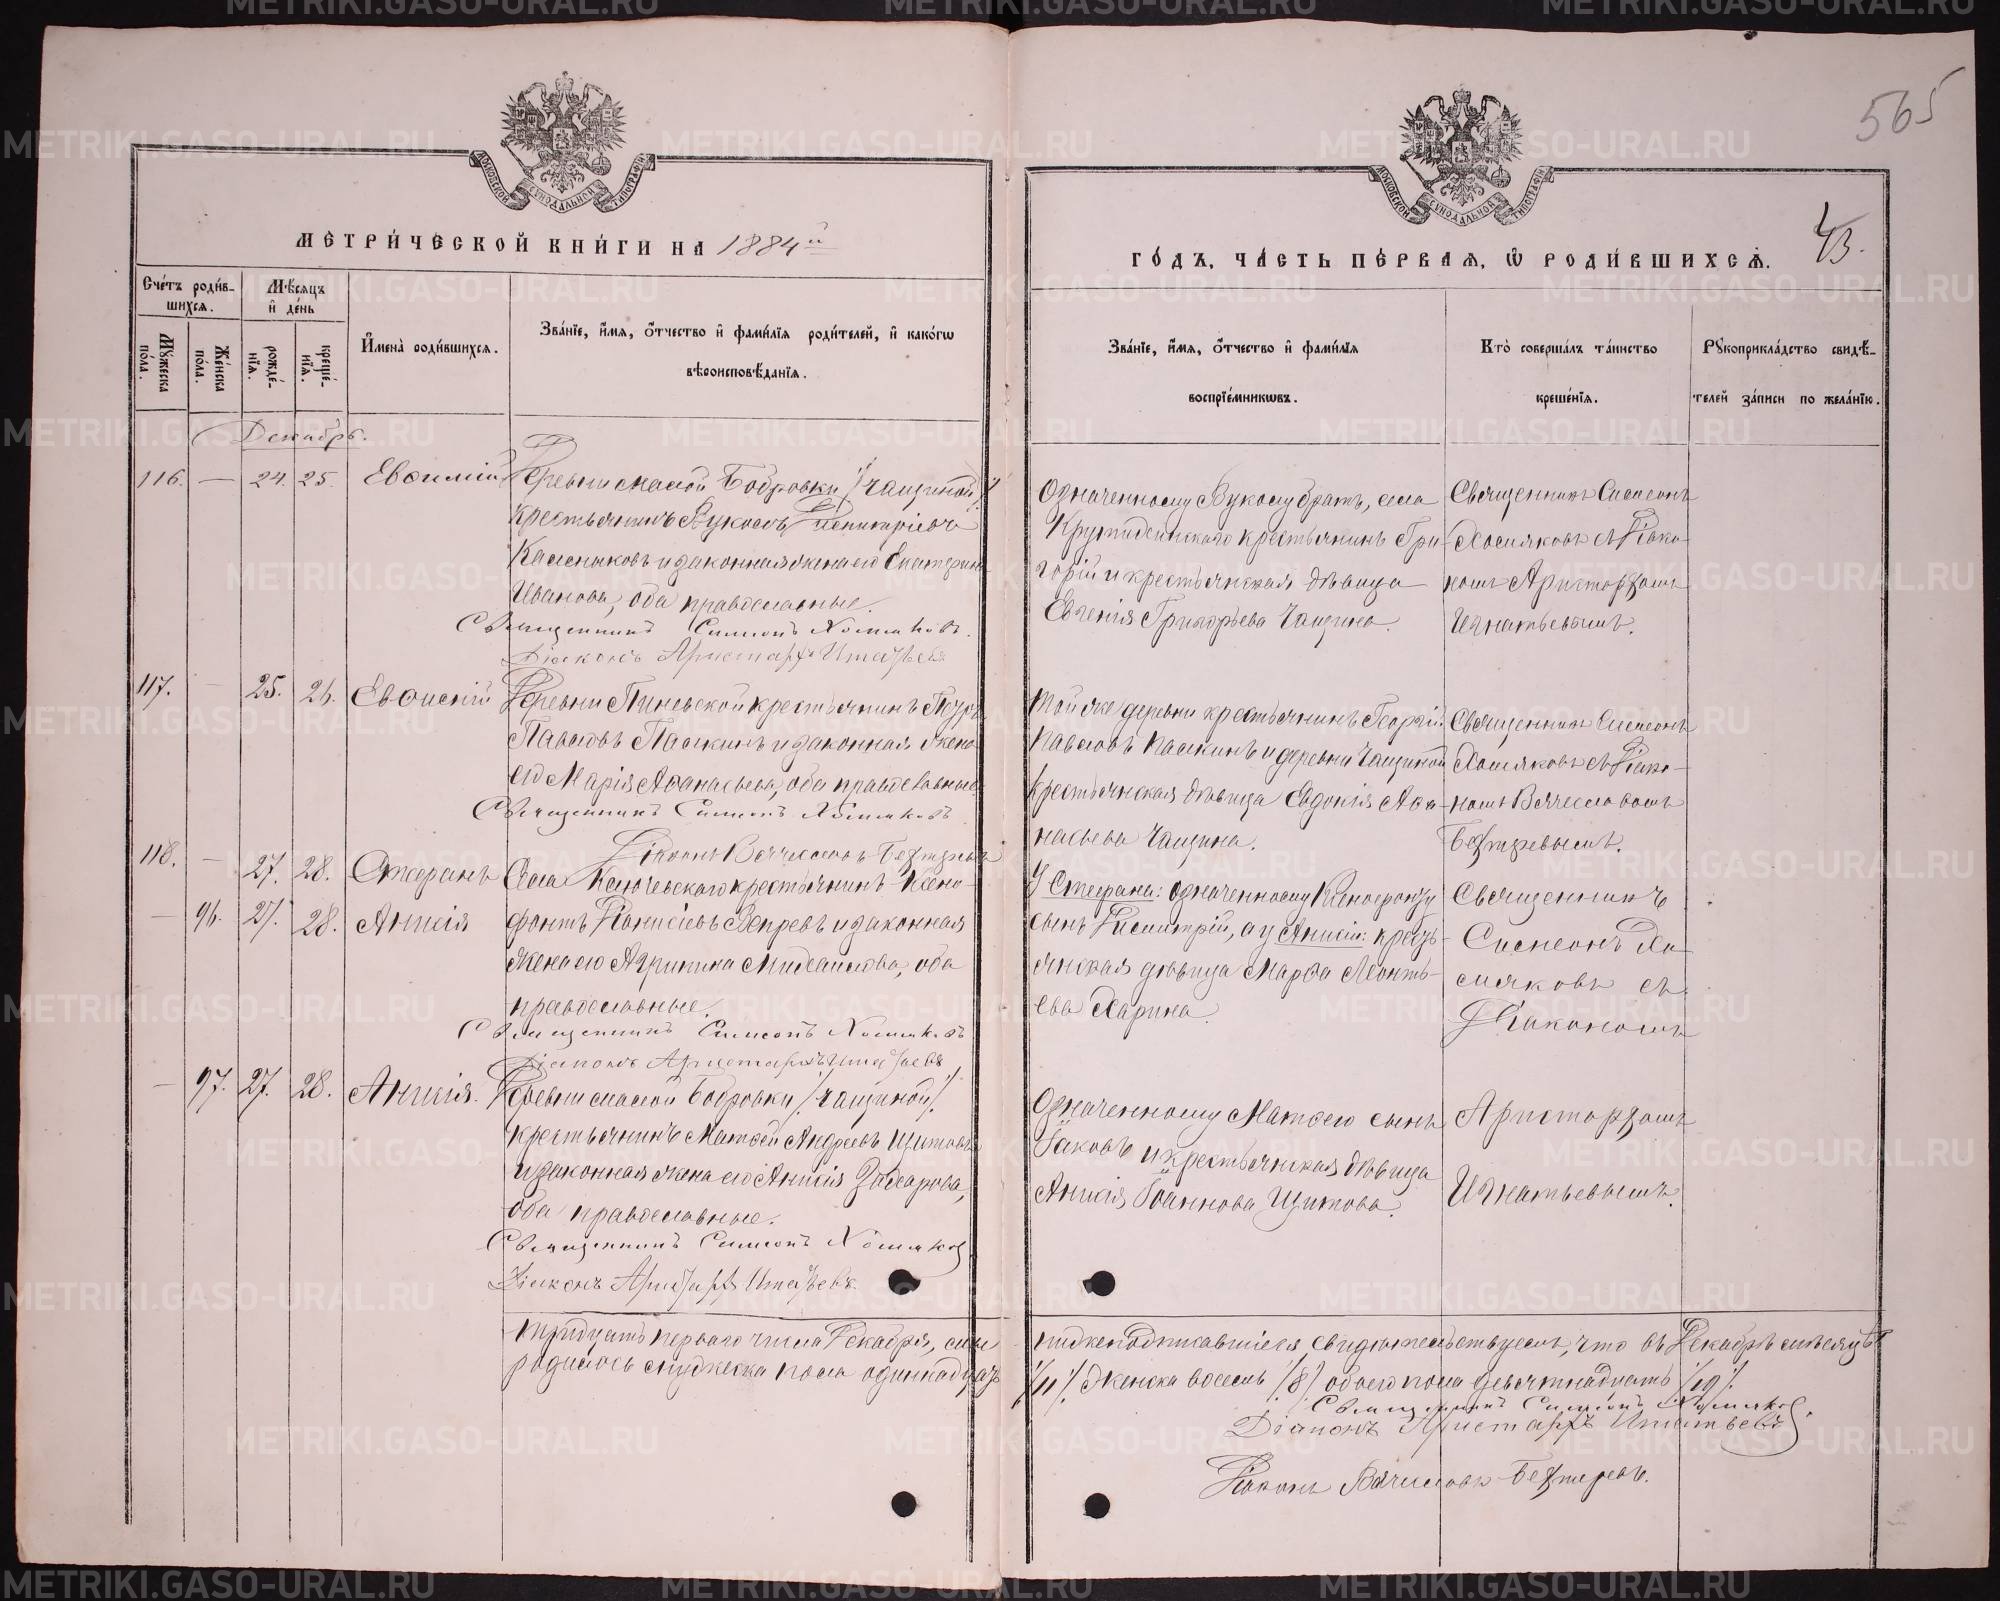 565
43.
МОСКОВСКОЙ СѴНОДАЛЬНОЙ ТИПОГРАФІИ
МОСКОВСКОЙ СѴНОДАЛЬНОЙ ТИПОГРАФІИ
МЕТРИ́ЧЕСКОЙ КНИ́ГИ НА 1884й
ГО́ДЪ, ЧА́СТЬ ПЕ́РВАѦ, Ѡ РОДИ́ВШИХСѦ.
Сче́тъ роди́в-
шихсѧ.
Мѣ́сѧцъ
и҆ де́нь
Му́жеска
по́ла.
Же́нска
по́ла.
рожде́-
нїѧ.
креще́-
нїѧ.
И҆мена̀ роди́вшихсѧ.
Зва́нїе, и҆́мѧ, ѻ҆́тчество и҆ фами́лїѧ роди́телей, и҆ како́гѡ
вѣроисповѣ́данїѧ.
Зва́нїе, и҆́мѧ, ѻ҆́тчество и҆ фами́лїѧ
воспрїе́мникѡвъ.
Кто̀ соверша́лъ та́инство
креще́нїѧ.
Рꙋкоприкла́дство свидѣ́-
телей за́писи по жела́нїю.
Декабрь.
116. — 24. 25. Евѳимій
Деревни малой Бобровки /Чащиной/
крестьянинъ Вуколъ Димитріевъ
Калсныковъ и законная жена его Екатерина
Иванова, оба православные.
Священникъ Симеонъ Хомяковъ.
Діаконъ Аристархъ Игнатьевъ
Означенному Вуколу братъ, села
Крутихинскаго крестьянинъ Гри-
горій и крестьянская дѣвица
Евгенія Григорьева Чащина.
Священникъ Симеонъ
Хомяковъ съ Діако-
номъ Аристархомъ
Игнатьевымъ.
117. — 25. 26. Евѳимій
Деревни Пиневской крестьянинъ Петръ
Павловъ Палкинъ и законная жена
его Марія Аѳанасьева, оба православные
Священникъ Симеонъ Хомяковъ
Діаконъ Вячеславъ Бехтеревъ
Той же деревни крестьянинъ Георгій
Павловъ Палкинъ и деревни Чащиной
крестьянская дѣвица Евдокія Аѳа-
насьева Чащина.
Священникъ Симеонъ
Хомяковъ съ Діако-
номъ Вячеславомъ
Бехтеревымъ.
118. — 27. 28. Стефанъ
— 96. 27. 28. Анисія
Села Ключевскаго крестьянинъ Ксено-
фонтъ Діонисіевъ Вепревъ и законная
жена его Агрипина Михаилова, оба
православные.
Священникъ Симеонъ Хомяковъ
Діаконъ Аристархъ Игнатьевъ
У Стефана: означенному Ксенофонту
сынъ Димитрій, а у Анисіи: кресть-
янская дѣвица Марѳа Леонть-
ева Харина.
Священникъ
Симеонъ Хо-
мяковъ съ
Діакономъ
— 97. 27. 28. Анисія.
Деревни малой Бобровки /Чащиной/.
крестьянинъ Матѳей Андреевъ Щитовъ
и законная жена его Анисія Захарова,
оба православные.
Священникъ Симеонъ Хомяковъ
Діаконъ Аристархъ Игнатьевъ.
Означенному Матѳею сынъ
Іаковъ и крестьянская дѣвица
Анисія Іоаннова Щитова.
Аристархомъ
Игнатьевымъ.
тридцать перваго числа Декабря, мы
родилось мужеска пола одиннадцать
нижеподписавшіеся, свидѣтельствуемъ, что въ Декабрѣ мѣсяцѣ
/11/. женска восемь /8/ обоего пола девятнадцать /19/.
Священникъ Симеонъ Хомяковъ.
Діаконъ Аристархъ Игнатьевъ
Діаконъ Вячеславъ Бехтеревъ.